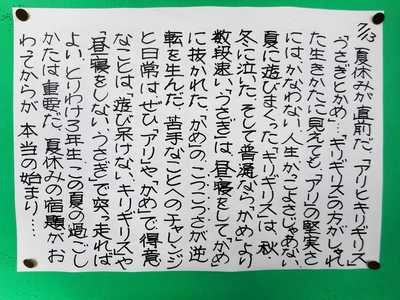 7/13 夏休みが直前だ。「アリとキリギリス」
「うさぎとかめ」…キリギリスの方がしゃれ
た生きかたに見えても、「アリ」の堅実さ
にはかなわない。人生かっこよさじゃあない。
夏に遊びまくった「キリギリス」は、秋・
冬に泣いた。そして普通なら「かめ」より
数段速い「うさぎ」は、昼寝をして「かめ」
に抜かれた。「かめ」のこつこつさが逆
転を生んだ。苦手なことへのチャレンジ
と日常は、ぜひ「アリ」や「かめ」で、得意
なことは、「遊び呆けないキリギリス」や
「昼寝をしないうさぎ」で突っ走れば
よい。とりわけ3年生、この夏の過ごし
かたは重要だ。夏休みの宿題がお
わってからが本当の始まり…。